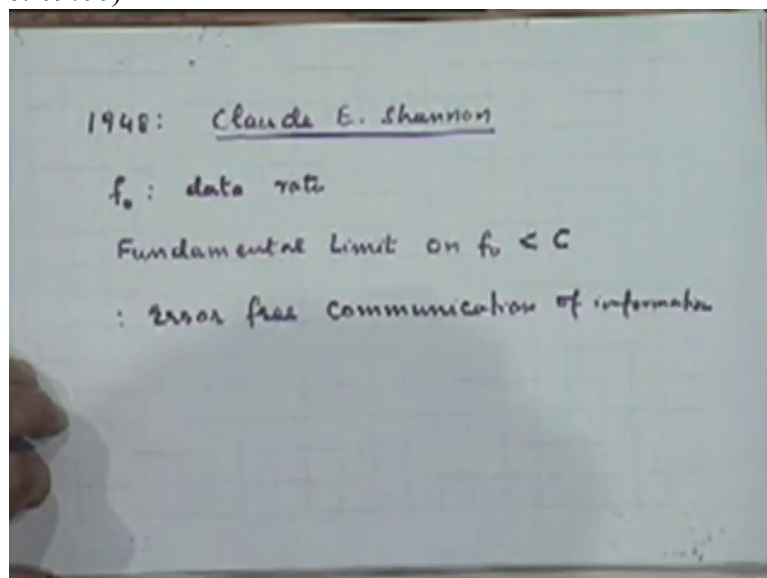 1948: Claude E. Shannon
f₀: data rate
Fundamental Limit on f₀ < C
: error free communication of information